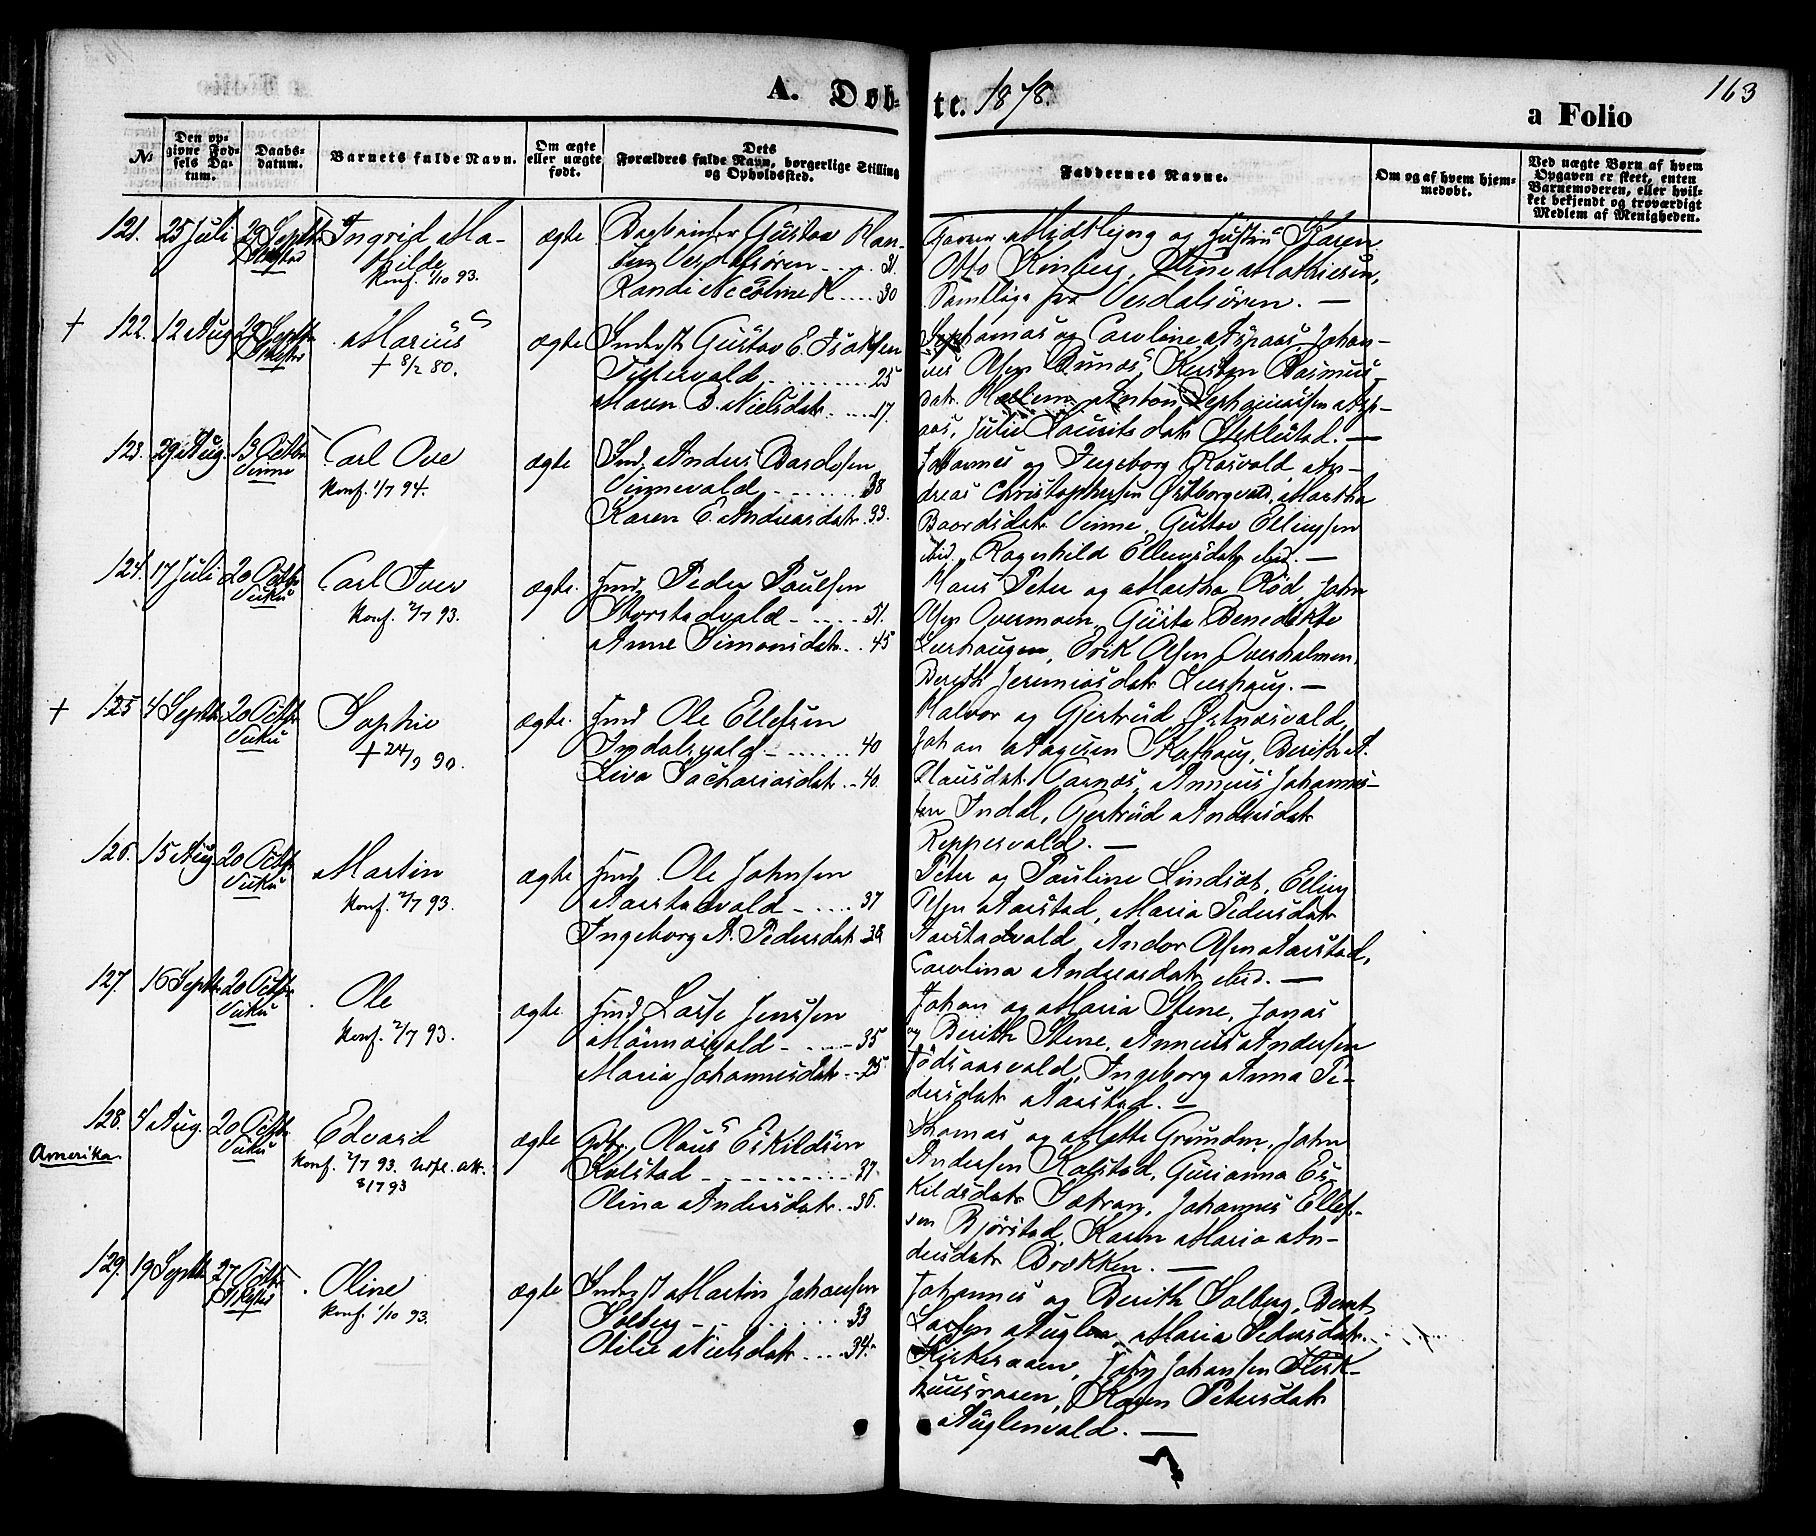 A. Døb-
te. 1878.
a Folio
163
No
Den op-
givne Fød-
sels Da-
tum.
Daabs-
datum.
Barnets fulde Navn.
Om ægte
eller uægte
født.
Dets
Forældres fulde Navn, borgerlige Stilling
og Opholdssted.
Faddernes Navne.
Om og af hvem hjem-
medøbt.
Ved uægte Børn af hvem
Opgaven er skeet, enten
Barnemoderen, eller hvil-
ket bekjendt og troværdigt
Medlem af Menigheden.
121. 25 Juli 29 Septbr
Ingrid Ma-
thilde
Konf. 1/10 93.
ægte
Gustav Han-
sen Verdalsøren 31.
Randi Nicoline H 30
Otto Kinberg, Trine Mathiesen,
Samtlige fra Verdalsøren. —
+ 122. 12 Aug 29 Septbr
Marius
+ 8/2 80.
ægte
Inderst Gustov E. Isaksen
25
Maren B. Nielsdatr 17.
og Caroline Aspaas, Johan-
nes Olsen Kirsten Rasmus-
datr Anton Zephaniassen Asp-
aas, Julie Lauritsdatr Stiklestad. —
123. 29 Aug. 13 Octbr
Vinne
Carl Ove
Konf. 1/7 94.
ægte
Ind. Anders Bardosen
Vinnevald 38
Karen E. Andreasdatr 33.
Johannes og Ingeborg Rosvald, An-
dreas Christophersen Østborgvald, Martha
Baardsdatr Vinne, Gustav Ellingsen
ibid, Ragnhild Ellingsdatr ibid. —
124. 17 Juli 20 Octbr
Vuku
Carl Iver
Konf. 2/7 93.
ægte.
Hmd Peder Paulsen
Storstadvald 51.
Anne Simonsdatr 45
Hans Peter og Martha Rød, John
Olsen Overmoen, Gusta Benedikte
Leerhaugen, Erik Olsen Overholmen,
Bereth Jeremiasdatr Leerhaug. —
+ 125 4 Septbr 20 Octbr
Vuku
Sophie
+ 24/9 90.
ægte.
Hmd Ole Ellefsen
Indalsvald 40
Liva Zachariasdatr 40.
Halvor og Gjertrud Østnæsvald,
Johan Aagesen Berith A.
Clausdatr Garnæs, Annæus Johannes-
sen Indal, Gjertrud Andersdatr
Reppesvald. —
126. 15 Aug. 20 Octbr
Vuku
Martin
Konf. 2/7 93.
ægte
Hmd. Ole Johnsen
Aarstadvald 37
Ingeborg A. Pedersdatr 38
Peter og Pauline Lindsæt, Elling
Olsen Aarstad, Maria Pedersdatr
Aarstadvald, Andor Olsen Aarstad,
Carolina Andreasdatr ibid. —
127. 16 Septbr 20 Octbr
Vuku
Ole
Konf. 2/7 93.
ægte
Hmd Lasse Jenssen
35
Maria Johannesdatr 25
Johan og Maria Stene, Jonas
og Berith Stene, Annæus Andersen
Ingeborg Anna Pe-
dersdatr Aarstad. —
128. 4 Aug. 20 Octbr
Vuku
Amerika.
Edvard
Konf. 2/7 93. Udfl. att.
8/7 93
ægte
Gbr. Claus Eskildsen
Kolstad 37.
Olina Andersdatr 36.
Thomas og Mette Grunden, John
Andersen Kolstad, Gurianna Es-
kildsdatr Sætran, Johannes Ellef-
sen Bjørstad, Karen Maria An-
dersdatr Brokken. —
129. 19 Septbr 27 Octbr
Oline
Konf. 1/10 93.
ægte
Inderst Martin Johansen
Solberg 33
Nielsdatr 34.
Johannes og Berith Solberg, Bernt
Larsen Auglen, Maria Pedersdatr
John Johansen Kirk-
Karen Petersdatr
Auglenvald. —